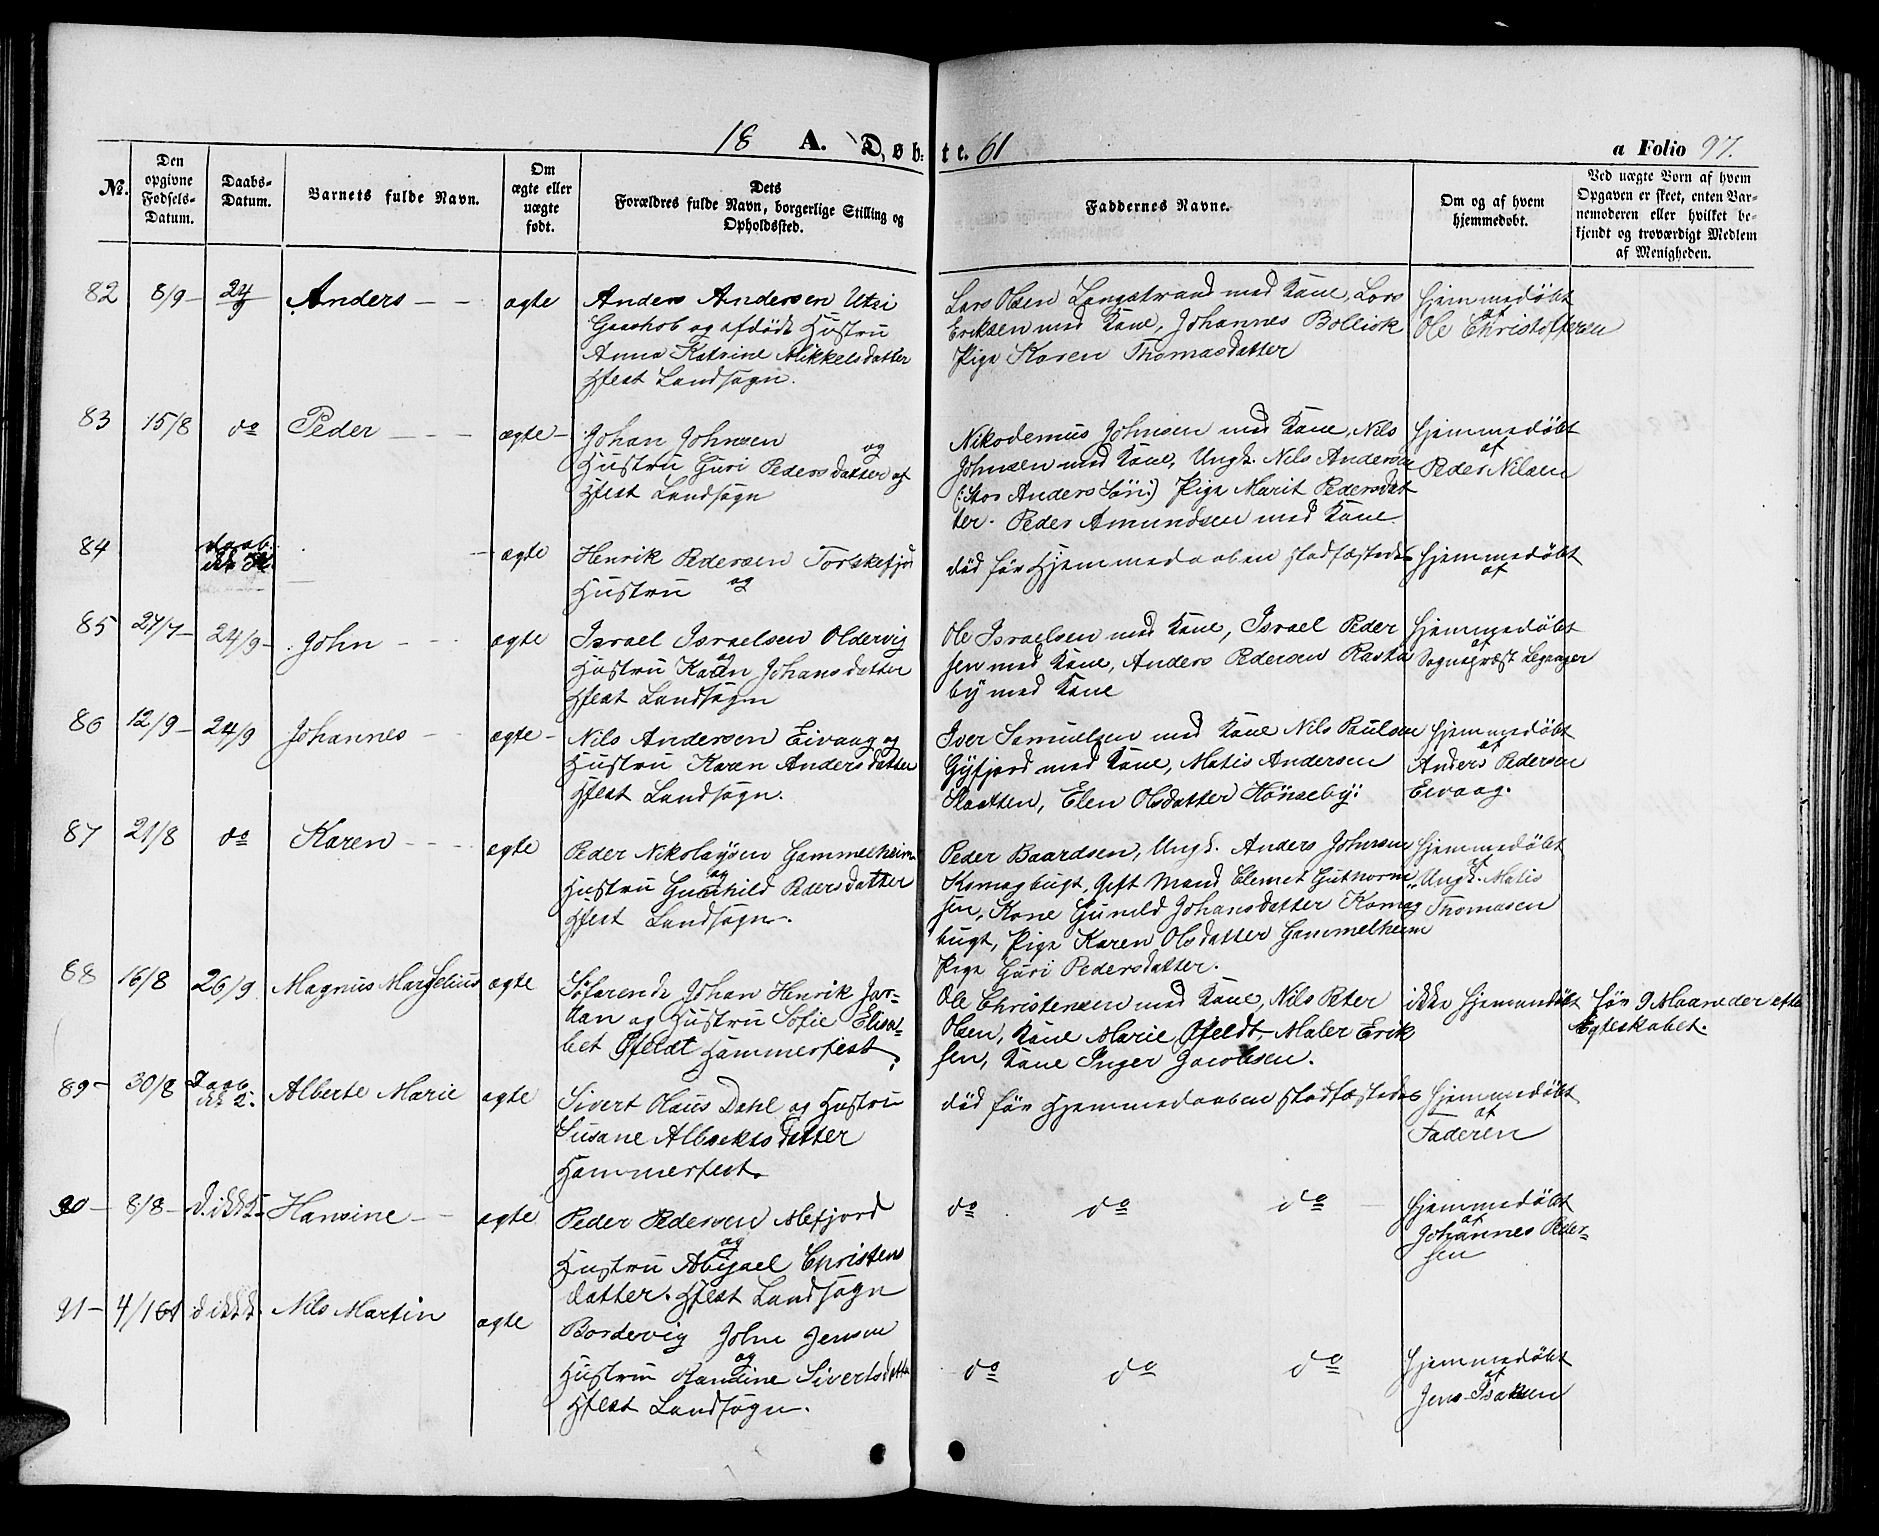 18 A. Døbte. 61
a Folio 97.
No.
Den opgivne Fødsels-Datum.
Daabs-Datum.
Barnets fulde Navn.
Om ægte eller uægte født.
Dets Forældres fulde Navn, borgerlige Stilling og Opholdssted.
Faddernes Navne.
Om og af hvem hjemmedøbt.
Ved uægte Børn af hvem
Opgaven er skeet, enten Bar-
nemoderen eller hvilket be-
kjendt og troværdigt Medlem
af Menigheden.
82 8/9 - 24/9 Anders - - ægte
Anders Andersen Utsi
og afdøde Hustru
Anna Katrine Mikkelsdatter
Hfest Landsogn.
Lars Olsen Langstrand med Kone, Lars
Eriksen med Kone, Johannes Bollisk
Pige Karen Thomasdatter
Hjemmedøbt
af
Ole Christoffersen
83 15/8 do Peder - - - ægte -
Johan Johnsen og
Hustru Guri Pedersdatter af
Hfest Landsogn
Nikodemus Johnsen med Kone, Nils
Johnsen med Kone, Ungk. Nils Andersen
(: Anders Søn:) Pige Marit Pedersdat
ter. Peder Amundsen med Kone.
Hjemmedøbt
af
Peder Nilsen
84 - ægte
Henrik Pedersen Torskefjord
Hustru og
død før Hjemmedaaben stadfæstedes
Hjemmedøbt
af
85 27/7 - 24/9 - John - ægte
Israel Israelsen Oldervig
og
Hustru Karen Johansdatter
Hfest Landsogn
Ole Israelsen med Kone, Israel Peder
sen med Kone, Anders Pedersen Rasta
by med Kone
Hjemmedøbt
af
Sognepræst Leganger
86 12/9 - 24/9 Johannes - ægte -
Nils Andersen Eivaag og
Hustru Karen Andersdatter
Hfest Landsogn.
Iver Samuelsen med Kone Nils Paulsen
Gyfjord med Kone, Matis Andersen
Slaatten, Elen Olsdatter Hønseby:
Hjemmedøbt
af
Anders Pedersen
Eivaag.
87 21/8 do Karen - - - ægte
Peder Nikolaysen Gammelheim
og
Hustru Gunhild Pedersdatter
Hfest Landsogn -.
Peder Baardsen, Ungk. Anders Johnsen
Komagbugt, Gift Mand Clemet Guthorm
sen, Kone Gunild Johansdatter Komag
bugt, Pige Karen Olsdatter Gammelheim
Pige Guri Pedersdatter.
Hjemmedøbt
af
Ungk. Matis
Thomasen
88 16/8 26/9 Magnus Margelius ægte
Søfarende Johan Henrik Jor-
dan og Hustru Sofie Elisa-
bet Ofeldt Hammerfest.
Ole Christensen med Kone, Nils Peter
Olsen, Kone Marie Ofeldt, Maler Erik
sen, Kone Inger Jacobsen.
ikke Hjemmedøbt
før 9 Maaneder efter
Ægteskabet.
89 - 30/8 Daab Alberte Marie ægte
Sivert Olaus Dahl og Hustru
Susane Albrektsdatter
Hammerfest.
død før Hjemmedaaben stadfæstedes
Hjemmedøbt
af
Faderen
90 - 8/8 - Hansine - - ægte
Peder Pedersen Alefjord
og
Hustru Abigael Christens
datter. Hfest Landsogn
do do do
Hjemmedøbt
af
Johannes Peder-
sen
91 - Nils Martin ægte
Bordevig John Jensen
og
Hustru Randine Sivertsdatter
Hfest Landsogn.
do do do
Hjemmedøbt
af
Jens Isaksen